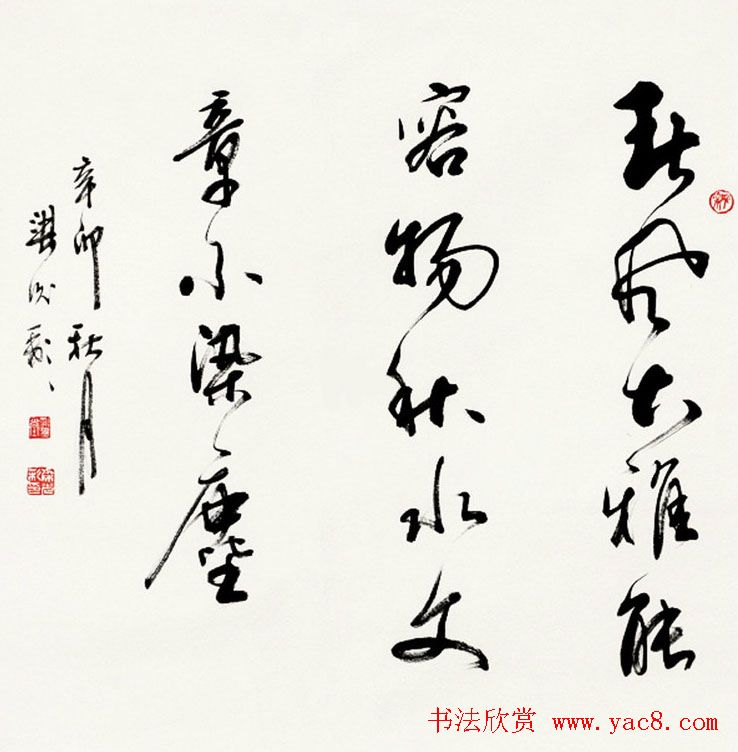 春风大雅能
容物秋水文
章不染塵
辛卯秋月
书法欣赏 www.yac8.com